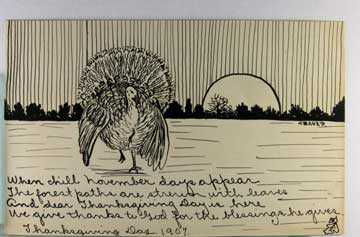 When chill november days appear
The forest paths are strewn with leaves
And dear Thanksgiving Day is here
We give thanks to God for the blessings he gives
Thanksgiving Day. 1907.